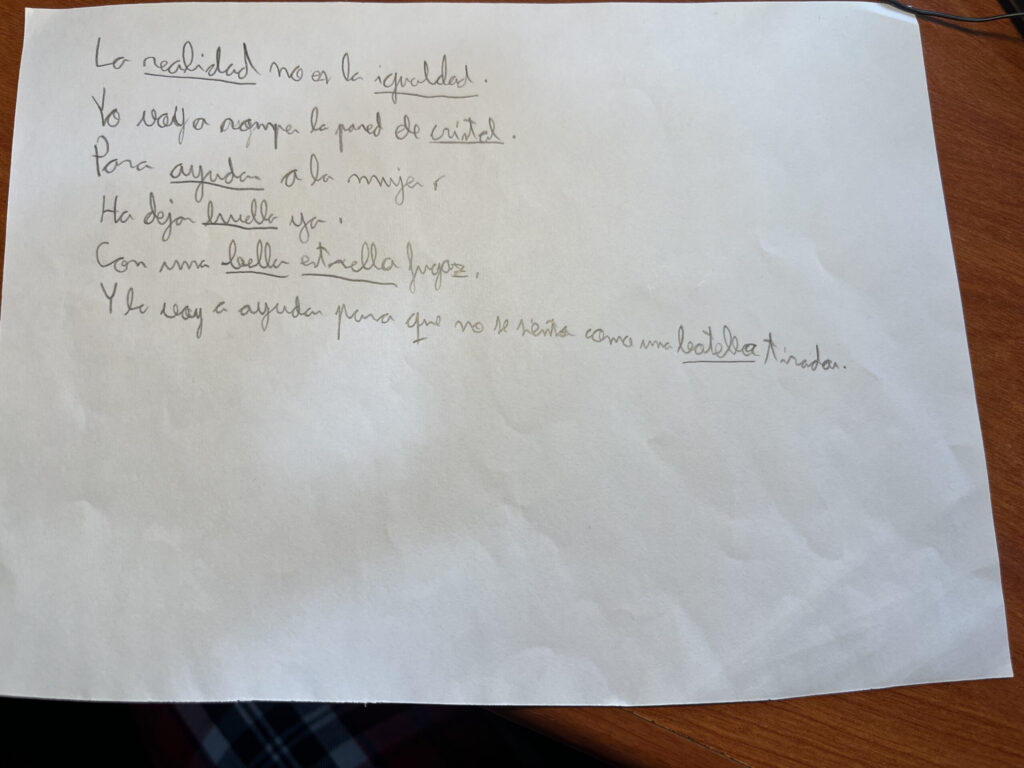 La realidad no es la igualdad.
Yo voy a romper la pared de cristal.
Para ayudar a la mujer
Ha dejar huella ya.
Con una bella estrella fugaz.
Y la voy a ayudar para que no se sienta como una tirada.